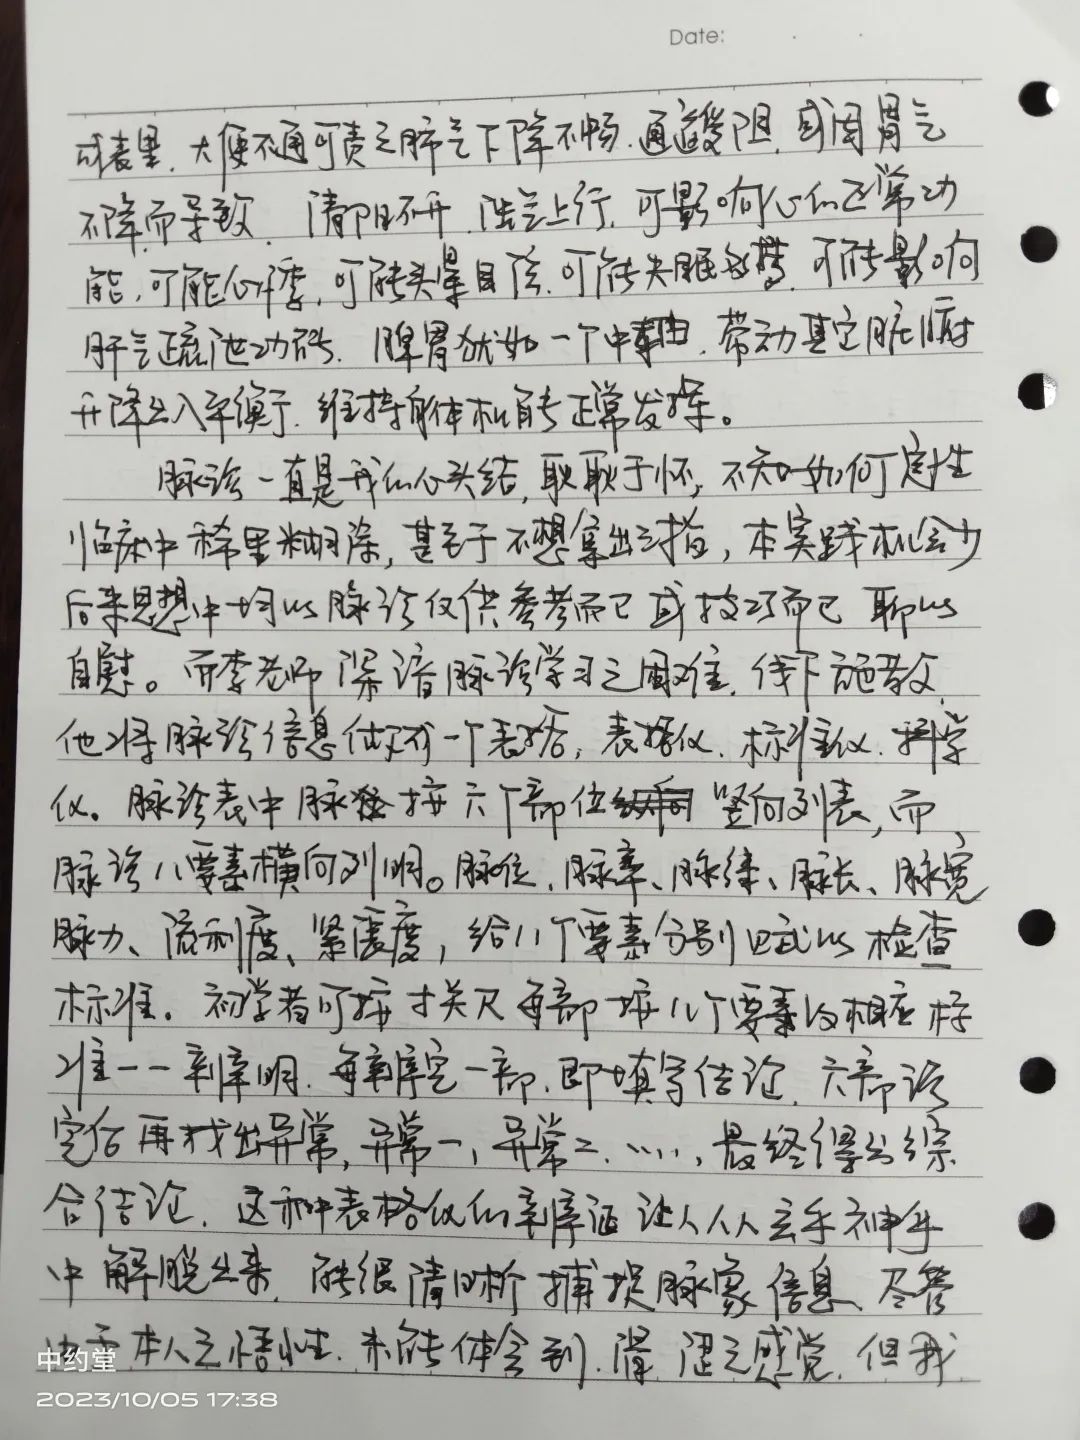 Date:
成表里. 大便不通可责之肺气下降不畅. 通道受阻. 或因胃气
不降, 而导致. 清阳不升. 浊气上行. 可影响心的正常功
能, 可能心悸, 可能头晕目眩. 可能失眠多梦. 可能影响
肝气疏泄功能. 脾胃犹如一个中轴. 带动其它脏腑
升降出入平衡, 维持身体机能正常发挥。
脉诊一直是我的心头结, 耿耿于怀, 不知如何定性
临床中稀里糊涂, 甚至于不想拿出三指, 本实践机会少
后来思想中均以脉诊仅供参考而已 或技巧而已 聊以
自慰。而李老师深谙脉诊学习之困难. 线下施教.
他将脉诊信息做成一个表格, 表格化. 标准化. 科学
化。脉诊表中脉 按六个部位 竖向列表, 而
脉诊八要素横向列明。脉位、脉率、脉律、脉长、脉宽
脉力、流利度、紧张度, 给八个要素分别 以检查
标准. 初学者可按寸关尺每部按八个要素的相应标
准一一辨明. 每辨完一部. 即填写结论. 六部诊
完后再找出异常, 异常一, 异常二. ……, 最终得出综
合结论. 这种表格化的辨证让人从玄乎神乎
中解脱出来. 能很清晰捕捉脉象信息、尽管
由于本人之悟性. 未能体会到. 滑 涩之感觉. 但我
中约堂
2023/10/05 17:38